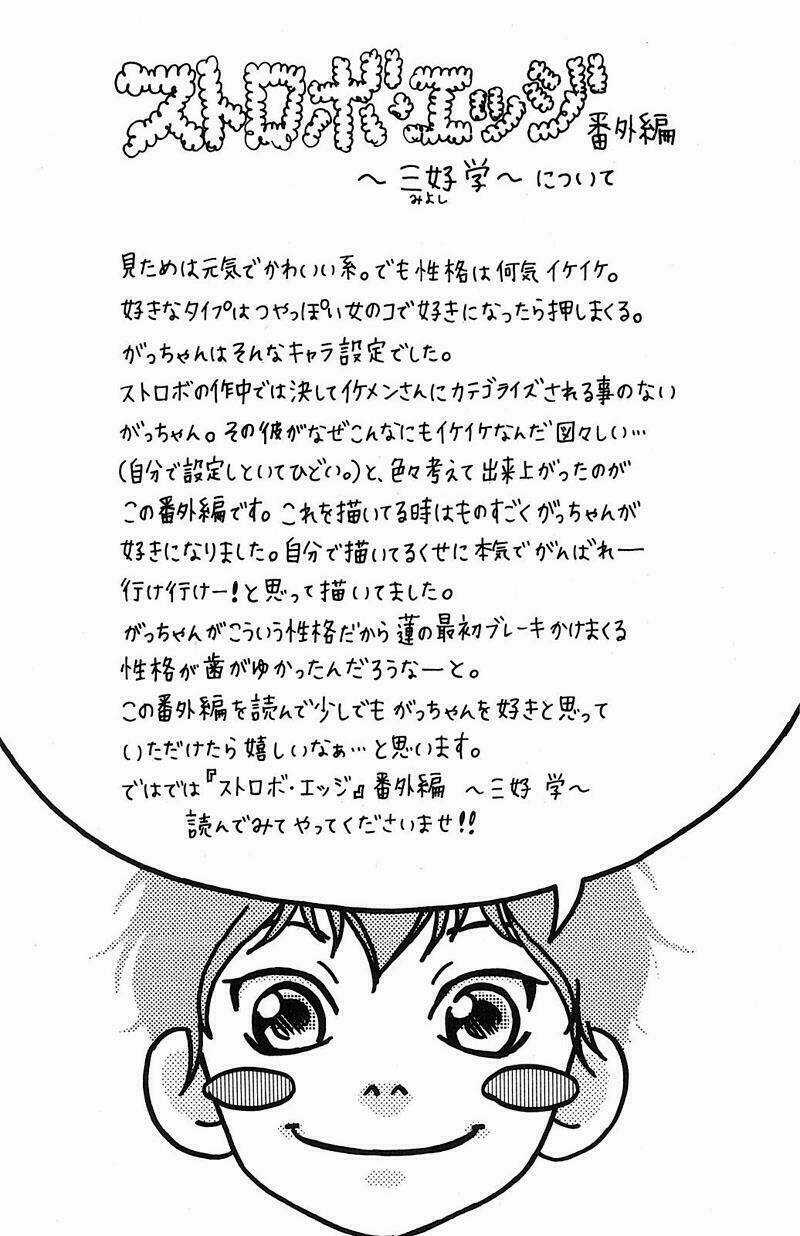 ストロボ・エッジ 番外編
～三好 学～ について
みよし
見ためは元気でかわいい系。でも性格は何気イケイケ。
好きなタイプはつやっぽい女のコで好きになったら押しまくる。
がっちゃんはそんなキャラ設定でした。
ストロボの作中では決してイケメンさんにカテゴライズされる事のない
がっちゃん。その彼がなぜこんなにもイケイケなんだ図々しい…
(自分で設定しといてひどい。)と、色々考えて出来上がったのが
この番外編です。これを描いてる時はものすごくがっちゃんが
好きになりました。自分で描いてるくせに本気でがんばれー
行け行けー!と思って描いてました。
がっちゃんがこういう性格だから蓮の最初ブレーキかけまくる
性格が歯がゆかったんだろうなーと。
この番外編を読んで少しでもがっちゃんを好きと思って
いただけたら嬉しいなぁ…と思います。
ではでは『ストロボ・エッジ』番外編 ～三好 学～
読んでみてやってくださいませ!!